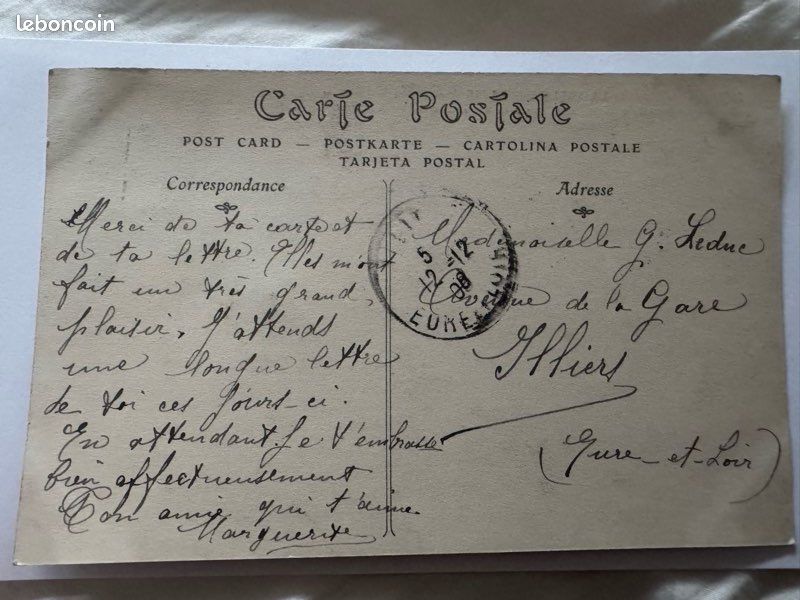 leboncoin
Carte Postale
POST CARD — POSTKARTE — CARTOLINA POSTALE
TARJETA POSTAL
Correspondance
Merci de ta carte et
de ta lettre. Elles m'ont
fait un très grand
plaisir. J'attends
une longue lettre
de toi ces jours-ci.
En attendant je t'embrasse
bien affectueusement
Ton amie qui t'aime
Marguerite
Adresse
Mademoiselle G. Leduc
Avenue de la Gare
Illiers
(Eure-et-Loir)
5 -12
12 08
EURE